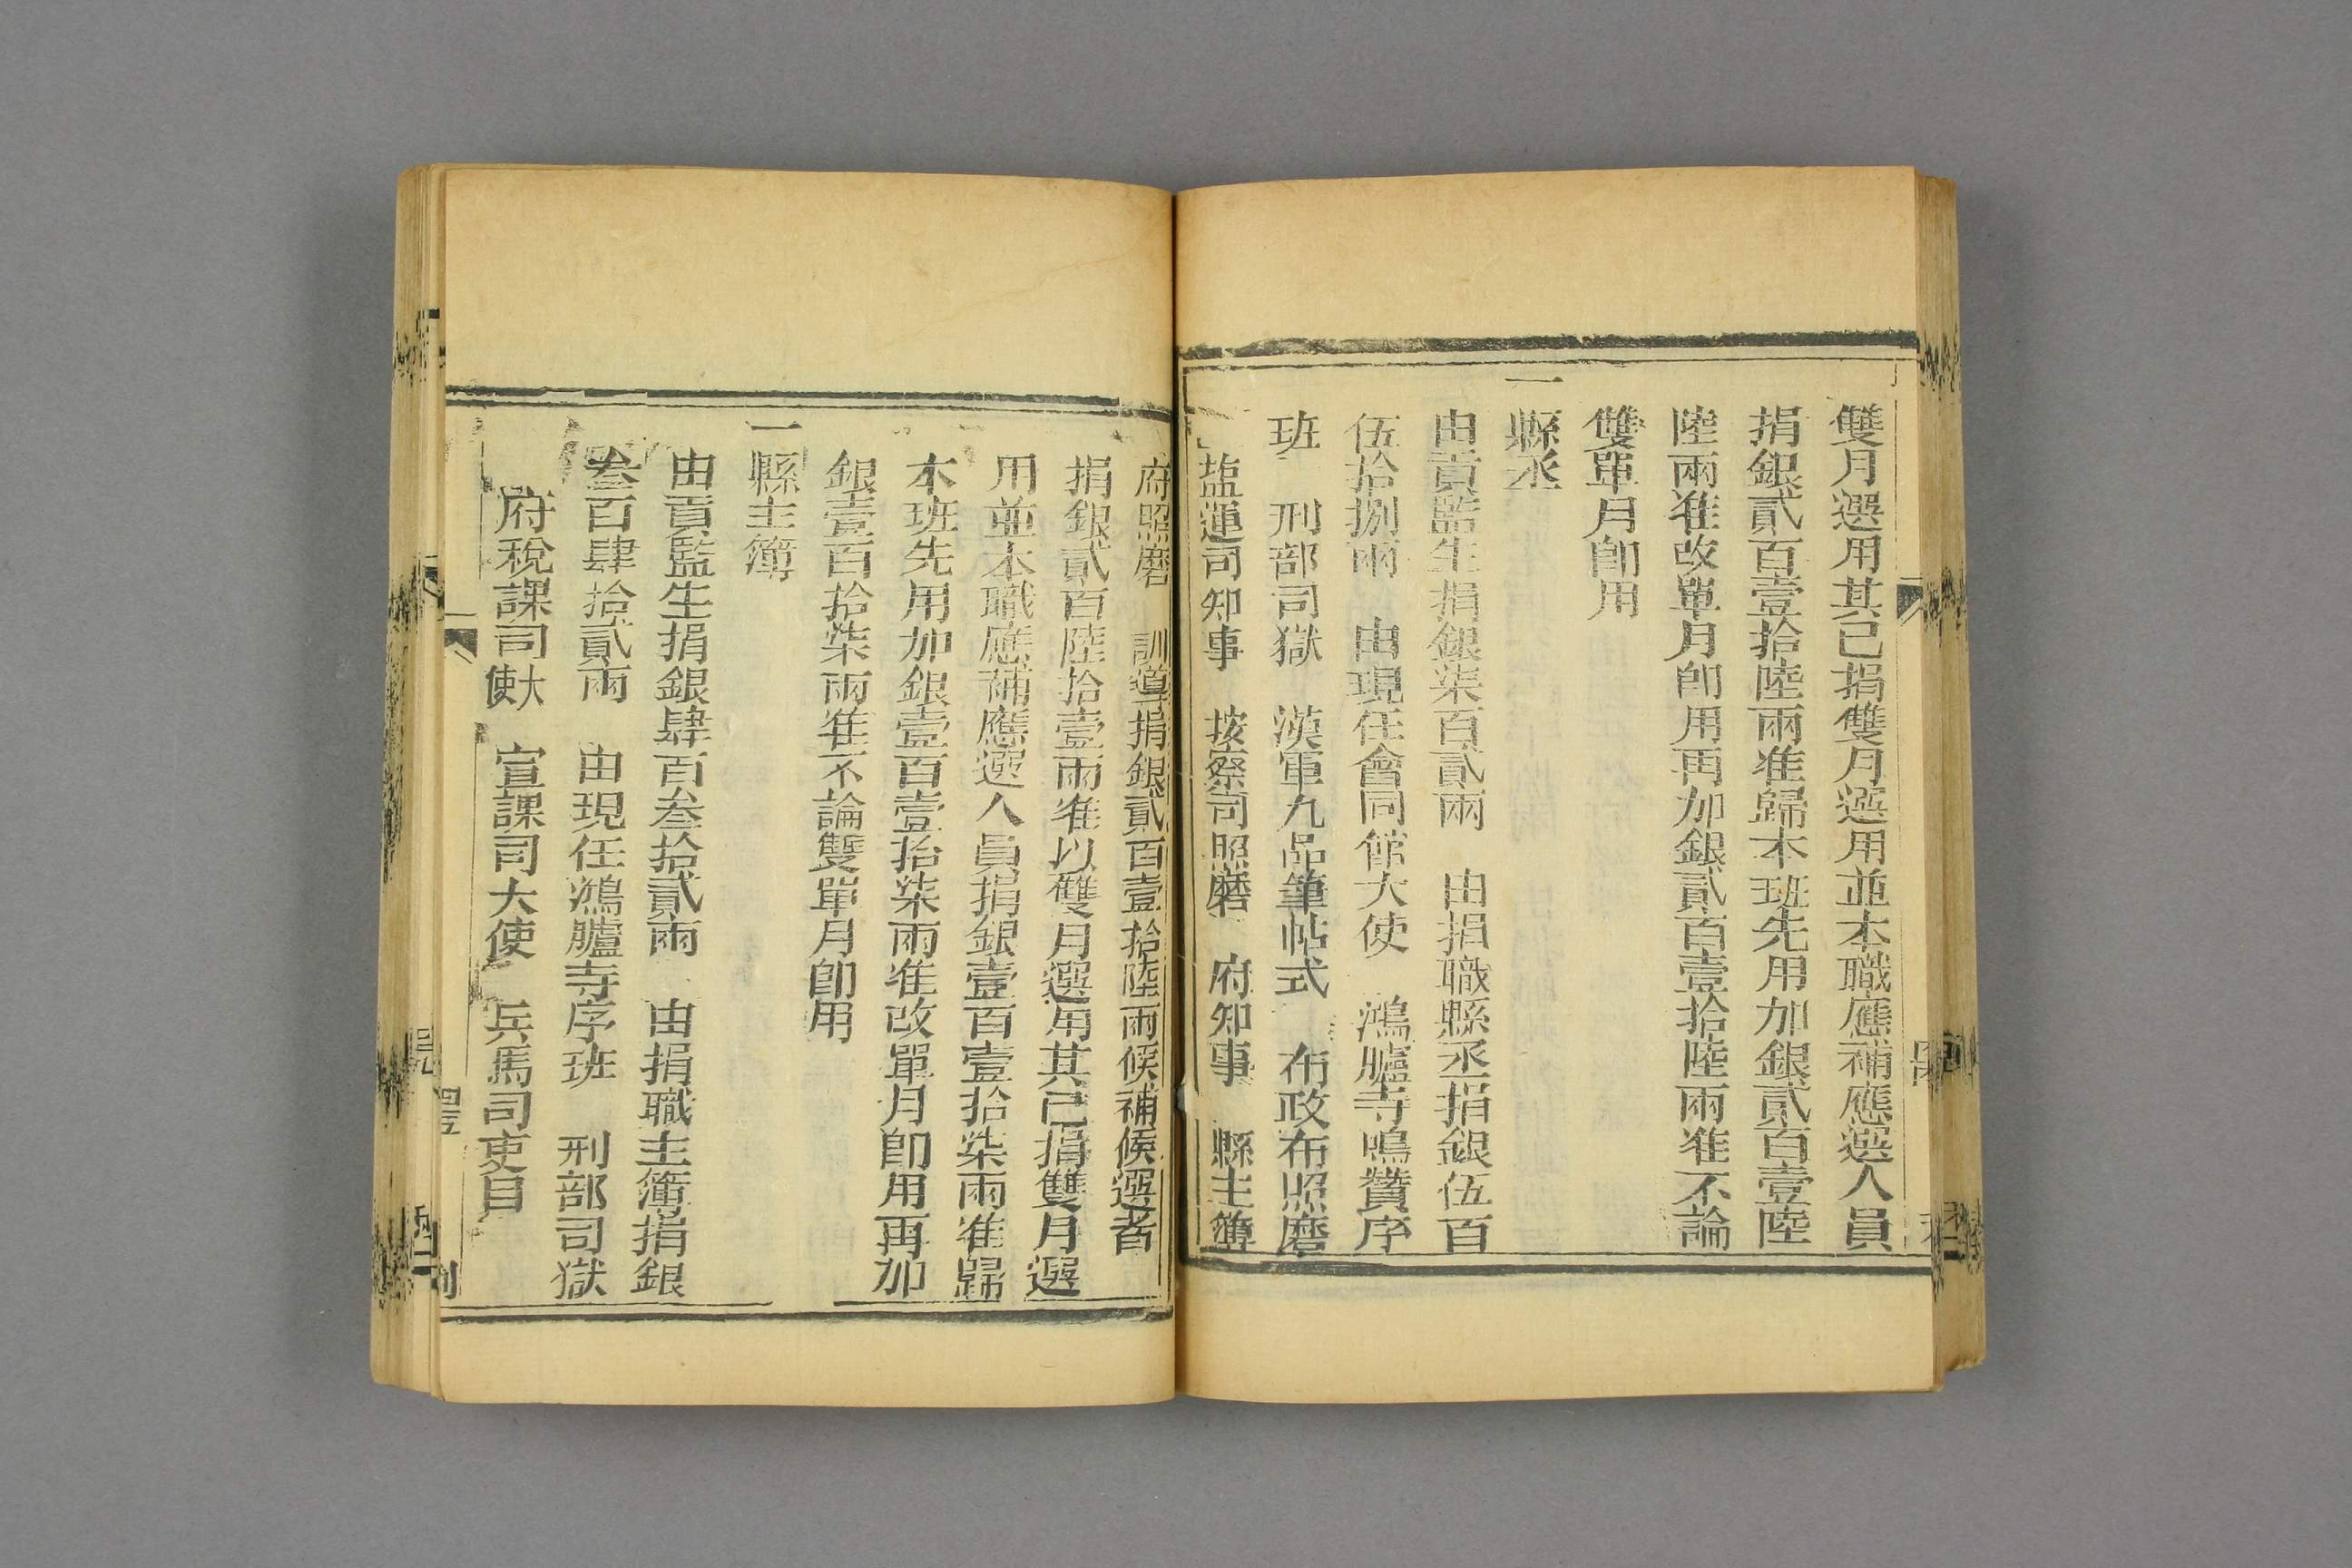 雙月選用其已捐雙月選用並本職應補應選人員
捐銀貳百壹拾陸兩准歸本班先用加銀貳百壹陸
陸兩准改單月卽用再加銀貳百壹拾陸兩准不論
雙單月卽用
一縣丞
由貢監生捐銀柒百貳兩　由捐職縣丞捐銀伍百
伍拾捌兩　由現任會同館大使　鴻臚寺鳴贊序
班　刑部司獄　漢軍九品筆帖式　布政布照磨
塩運司知事　按察司照磨　府知事　縣主簿
府照磨　訓導捐銀貳百壹拾陸兩候補候選者
捐銀貳百陸拾壹兩准以雙月選用其已捐雙月選
用並本職應補應選人員捐銀壹百壹拾柒兩准歸
本班先用加銀壹百壹拾柒兩准改單月卽用再加
銀壹百拾柒兩准不論雙單月卽用
一縣主簿
由貢監生捐銀肆百叁拾貳兩　由捐職主簿捐銀
叁百肆拾貳兩　由現任鴻臚寺序班　刑部司獄
府稅課司大使　宣課司大使　兵馬司吏目